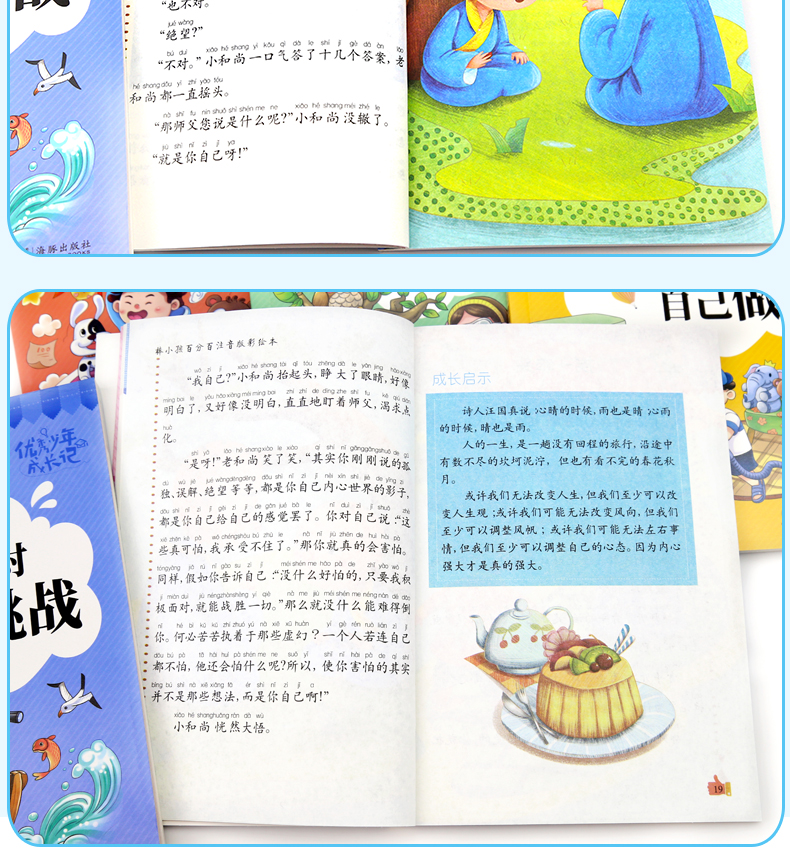 战
“也不对。”
jué wàng
“绝望?”
bú duì xiǎo hé shang yì kǒu qì dá le shí jǐ gè dá àn lǎo
“不对。”小和尚一口气答了十几个答案,老
hé shang dōu yì zhí yáo tóu
和尚都一直摇头。
nà shī fu nín shuō shì shén me ne xiǎo hé shang méi zhé le
“那师父您说是什么呢?”小和尚没辙了。
jiù shì nǐ zì jǐ ya
“就是你自己呀!”
海豚出版社
自己做
棒小孩百分百注音版彩绘本
wǒ zì jǐ xiǎo hé shang tái qǐ tóu zhēng dà le yǎn jing hǎo xiàng
“我自己?”小和尚抬起头,睁大了眼睛,好像
míng bai le yòu hǎo xiàng méi míng bai zhí zhí de dīng zhe shī fu kě qiú diǎn
明白了,又好像没明白,直直地盯着师父,渴求点
huà
化。
shì ya lǎo hé shang xiào le xiào qí shí nǐ gāng gāng shuō de gū
“是呀!”老和尚笑了笑,“其实你刚刚说的孤
dú wù jiě jué wàng děng děng dōu shì nǐ zì jǐ nèi xīn shì jiè de yǐng zi
独、误解、绝望等等,都是你自己内心世界的影子,
dōu shì nǐ zì jǐ gěi zì jǐ de gǎn jué bà le nǐ duì zì jǐ shuō zhè
都是你自己给自己的感觉罢了。你对自己说:‘这
xiē zhēn kě pà wǒ chéng shòu bú zhù le nà nǐ jiù zhēn de huì hài pà
些真可怕,我承受不住了。’那你就真的会害怕。
tóng yàng jiǎ rú nǐ gào su zì jǐ méi shén me hǎo pà de zhǐ yào wǒ jī
同样,假如你告诉自己:‘没什么好怕的,只要我积
jí miàn duì jiù néng zhàn shèng yí qiè nà me jiù méi shén me néng nán dǎo
极面对,就能战胜一切。’那么就没什么能难得倒
nǐ hé bì kǔ kǔ zhí zhuó yú nà xiē xū huàn yí gè rén ruò lián zì jǐ
你。何必苦苦执着于那些虚幻?一个人若连自己
dōu bú pà tā hái huì pà shén me ne suǒ yǐ shǐ nǐ hài pà de qí shí
都不怕,他还会怕什么呢?所以,使你害怕的其实
bìng bú shì nà xiē xiǎng fǎ ér shì nǐ zì jǐ a
并不是那些想法,而是你自己啊!”
xiǎo hé shang huǎng rán dà wù
小和尚恍然大悟。
成长启示
诗人汪国真说:心晴的时候,雨也是晴;心雨
的时候,晴也是雨。
人的一生,是一趟没有回程的旅行,沿途中
有数不尽的坎坷泥泞,但也有看不完的春花秋
月。
或许我们无法改变人生,但我们至少可以改
变人生观;或许我们可能无法改变风向,但我们
至少可以调整风帆;或许我们可能无法左右事
情,但我们至少可以调整自己的心态。因为内心
强大才是真的强大。
19
优秀少年
成长记
对
挑战